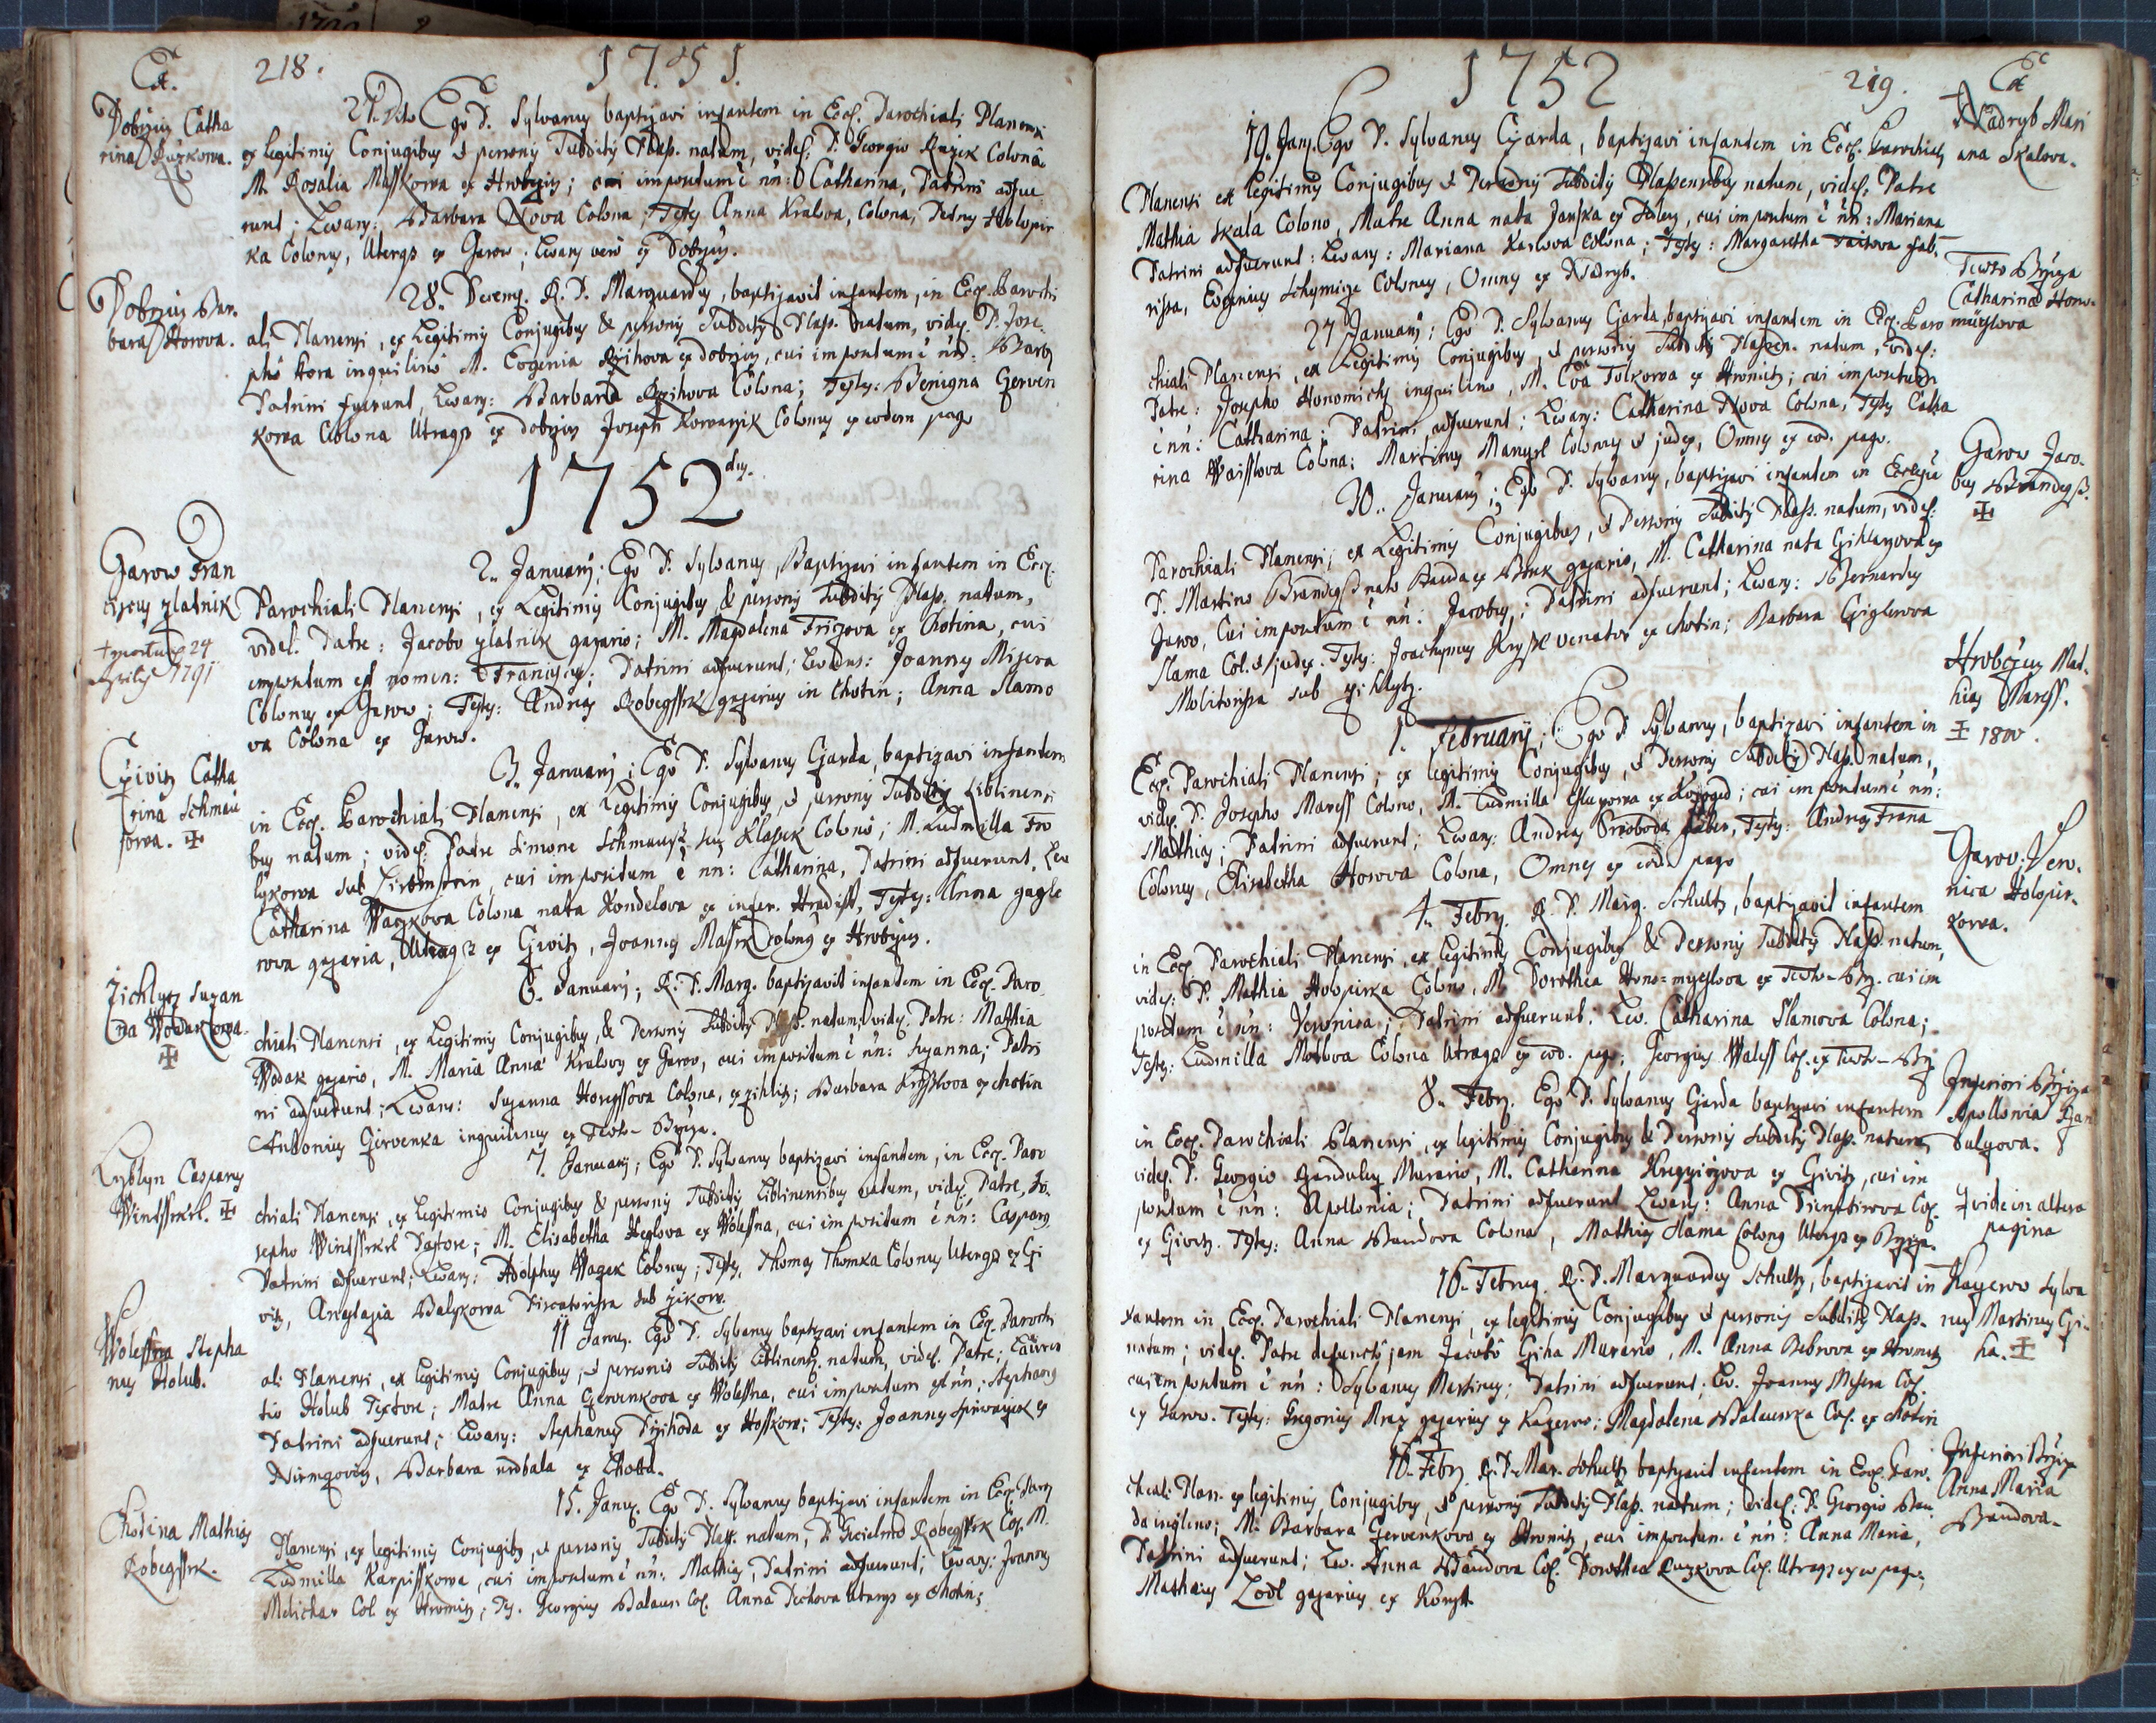 218.
1751.
Dobrziz Catha
rina Ruzkowa.
27. Dito Ego P. Sylvanus baptizavi infantem in Eccl. Parochiali Planensi
ex legitimis Conjugibus et personis Subditis Plass. natum, videl: P. Georgio Ruzek Colono
M. Rosalia Masskowa ex Hrobczitz; cui impositum ē nn: Catharina, Patrini adfue
runt; Levans: Barbara Nova Colona; Testes Anna Kralova, Colona, Petrus Holopir
ka Colonus, Uterqz ex Jarow; Levans vero ex Dobrzitz.
Dobrziz Bar.
bara Horova.
28. Decemb. R. P. Marquardus, baptizavit infantem, in Eccl. Parochi
ali Planensi, ex Legitimis Conjugibus & personis Subditis Plass. natum, videl. P. Jose.
pho Hora inquilino M. Eugenia Rzihova ex dobrzitz, cui impositum ē nn: Barb
Patrini fuerunt, Levans: Barbara Rzihova Colona; Testes: Benigna Gerven
kowa Colona Utraqz ex dobrzitz Joseph Kowarzik Colonus ex eodem pago
1752 dus.
Garow Fran
ciscus zlatnik
+ mortuus 24
Aprilis 1791
2. Januarij; Ego P. Sylvanus, Baptizavi infantem in Eccl.
Parochiali Planensi, ex Legitimis Conjugibus & personis Subditis Plass. natum,
videl. Patre: Jacobo zlatnik gazario; M. Magdalena Friczova ex Chotina, cui
impositum est nomen: Franciscus; Patrini adfuerunt; Levans: Joannes Misera
Colonus ex Jarow; Testes: Andreas Robegssek gazarius in Chotin; Anna Slamo
va Colona ex Jarow.
Cziwitz Catha
rina Schmau
sowa. ✠
3. Januarij; Ego P. Sylvanus Gjarda, baptizavi infantem
in Eccl. Parochiali Planensi, ex Legitimis Conjugibus, et personis Subditis Liblinensi
bus natum; videl: Patre Simone Schmausz seu Klasek Colono; M. Ludmilla Fro
lykowa sub Lirbnstein, cui impositum ē nn: Catharina, Patrini adfuerunt, Lev
Catharina Waczkowa Colona nata Kondelova ex infer. Hradist, Testes: Anna gagle
rova gazaria, Utraqz ex Giwitz, Joannes Massek colonus ex Hrobczitz.
Zichlytz Suzan
na Wodakowa.
✠
6. Januarij; R. P. Marq. baptizavit infantem in Eccl. Paro.
chiali Planensi, ex Legitimis Conjugibus, & Personis Subditis Plass. natum, videl. Patre: Mathia
Wodak gazario, M. Maria Anna Kralovy ex Garov, cui impositum ē nn: Suzanna; Patri
ni adfuerunt; Levans: Suzanna Horegssova Colona, ex zihlitz; Barbara Krysslova ex chotin
Antonius Girvenka inquilinus ex Teutsch-Brziza.
Lyblyn Casparus
Windssekl. ✠
7. Januarij; Ego P. Sylvanus baptizavi infantem, in Eccl. Paro
chiali Planensi, ex Legitimis Conjugibus & personis Subditis Liblinensibus natum, videl. Patre, Jo.
sepho Windssekl Pastore; M. Elisabetha Heglova ex Wolessna, cui impositum ē nn: Casparus
Patrini adfuerunt; Levans: Adolphus Wazek Colonus; Testes, Thomas Thomka Colonus Uterqz ex Gi
vitz, Anastasia Balykowa Piscatorissa sub zikow.
Wolessna Stepha
nus Holub.
11 Janu. Ego P. Sylvanus baptizavi infantem in Eccl. Parochi
ali Planensi, ex legitimis Conjugibus, et personis Subditis Liblinens. natum, videl. Patre; Lauren
tio Holub Textore; Matre Anna Gervenkova ex Wolessna, cui impositum est nn: Stephanus
Patrini adfuerunt; Levans: Stephanus Przihoda ex Hosskow; Testes: Joannes
Niemczovitz, Barbara ex Lhotta.
Chotina Mathias
Robegssek.
15. Janu. Ego P. Sylvanus baptizavi infantem in Eccl. Paro
Planensi, ex legitimis Conjugibus, et personis Subditis Plass. natum, P. Robegssek Col. M.
Ludmilla Karpisskowa, cui impositum ē nn: Mathias, Patrini adfuerunt; Levans: Joannes
Melichar Col. ex Hromitz; Tes. Georgius Balaun Col. Anna Pechova Uterqz ex Chotin;
1752
219.
Nadryb Mari
ana Skalova.
19. Janu. Ego P. Sylvanus Gjarda, baptizavi infantem in Eccl. Parochiali
Planensi ex legitimis Conjugibus et Personis Subditis Plassensibus natum, videl: Patre
Mathia Skala Colono, Matre Anna nata Janska ex , cui impositum ē nn: Mariana
Patrini adfuerunt: Levans: Mariana Karlova Colona; Testes: Margaretha fab-
rissa, Eugenius Schymice Colonus, Omnes ex Nadryb.
Teutsch Brziza
Catharina Hono-
micslova
27 Januarij; Ego P. Sylvanus Gjarda, baptizavi infantem in Eccl. Paro
chiali Planensi, ex Legitimis Conjugibus, et personis Subditis Plassen. natum, videl:
Patre: Josepho Honomichl inquilino, M. Eva Tolkowa ex Hromitz; cui impositum
ē nn: Catharina; Patrini adfuerunt; Levans: Catharina Nova Colona, Testes Catha
rina Waisslova Colona; Martinus Manzel Colonus et judex, Omnes ex eod. pago.
Garow Jaco.
bus Brandegs.
✠
30.. Januarij; Ego P. Sylvanus, baptizavi infantem in Ecclesia
Parochiali Planensi; ex Legitimis Conjugibus, et Personis Subditis Plass. natum, videl:
P. Martino Brandegs nato Banda ex Brzek gazario, M. Catharina nata Giklarzova ex
Jarov, Cui impositum ē nn: Jacobus; Patrini adfuerunt; Levans: Bernardus
Slama Col. et judex. Testes: Joachymus Krysl venator ex Chotin; Barbara Giglerova
Molitorissa sub zihlytz.
Hrobczitz Mat-
hias Maress.
✠ 1800.
1. Februarij; Ego P. Sylvanus, baptizavi infantem in
Eccl. Parochiali Planensi; ex legitimis Conjugibus, et Personis Subditis Plass. natum,
videl. P. Josepho Maress Colono, M. Ludmilla ex Kozoged; cui impositum ē nn:
Mathias; Patrini adfuerunt; Levans: Andreas Swoboda faber, Testes: Andreas Frana
Colonus, Elisabetha Horova Colona, Omnes ex eod. pago
Garov. Vero.
nica Holopir-
kowa.
4. Febru. R. P. Marq. Schultz, baptizavit infantem
in Eccl. Parochiali Planensi, ex legitimis Conjugibus & Personis Subditis Plass. natum,
videl: P. Mathia Holopirka Colono, M. Dorothea Hono=myslova ex Teutsch-Brz. cui im
positum ē nn: Veronica; Patrini adfuerunt: Lev. Catharina Slamova Colona;
Testes: Ludmilla Mottlova Colona Utraqz ex eod. pago; Georgius Waless Col. ex Teutsch-Brz
Inferiori Brziza
Apollonia Gan
dulzova.
8. Febru. Ego P. Sylvanus Gjarda baptizavi infantem
in Eccl. Parochiali Planensi, ex legitimis Conjugibus & Personis Subditis Plass. natum
videl. P. Georgio Gandulus Murario, M. Catharina Kregzirzova ex Givitz, cui im
positum ē nn: Apollonia; Patrini adfuerunt Levans: Anna Col.
ex Givitz. Testes: Anna Bandova Colona, Mathias Slama Colonus Uterqz ex Brziza.
vide in altera
pagina
Kazerow Sylva
nus Martinus Gi-
ha. ✠
16. Februa. R. P. Marquardus Schultz, baptizavit in
fantem in Eccl. Parochiali Planensi, ex legitimis Conjugibus et personis Subditis Plass.
natum; videl. Patre defuncti jam Jacobo Giha Murario, M. Anna Bebrova ex Hromitz
cui impositum ē nn: Sylvanus Martinus; Patrini adfuerunt; Lev. Joannes Misera Col.
ex Garow. Testes: Gregorius Mraz gazarius ex Kazerow; Magdalena Balaunka Col. ex Chotin
Inferiori Brziza
Anna Maria
Bandova.
16. Febru R. P. Mar. Schultz baptizavit infantem in Eccl. Paro.
chiali Plan. ex legitimis Conjugibus, et personis Subditis Plass. natum; videl: P. Georgio Ban
da inqlino; M. Barbara Gervenkova ex Hromitz, cui impositum ē nn: Anna Maria,
Patrini adfuerunt; Lev. Anna Bandova Col. Dorothea Ruzkova Col. Utraqz ex eo pago;
Mathias Zodl gazarius ex Koryt.